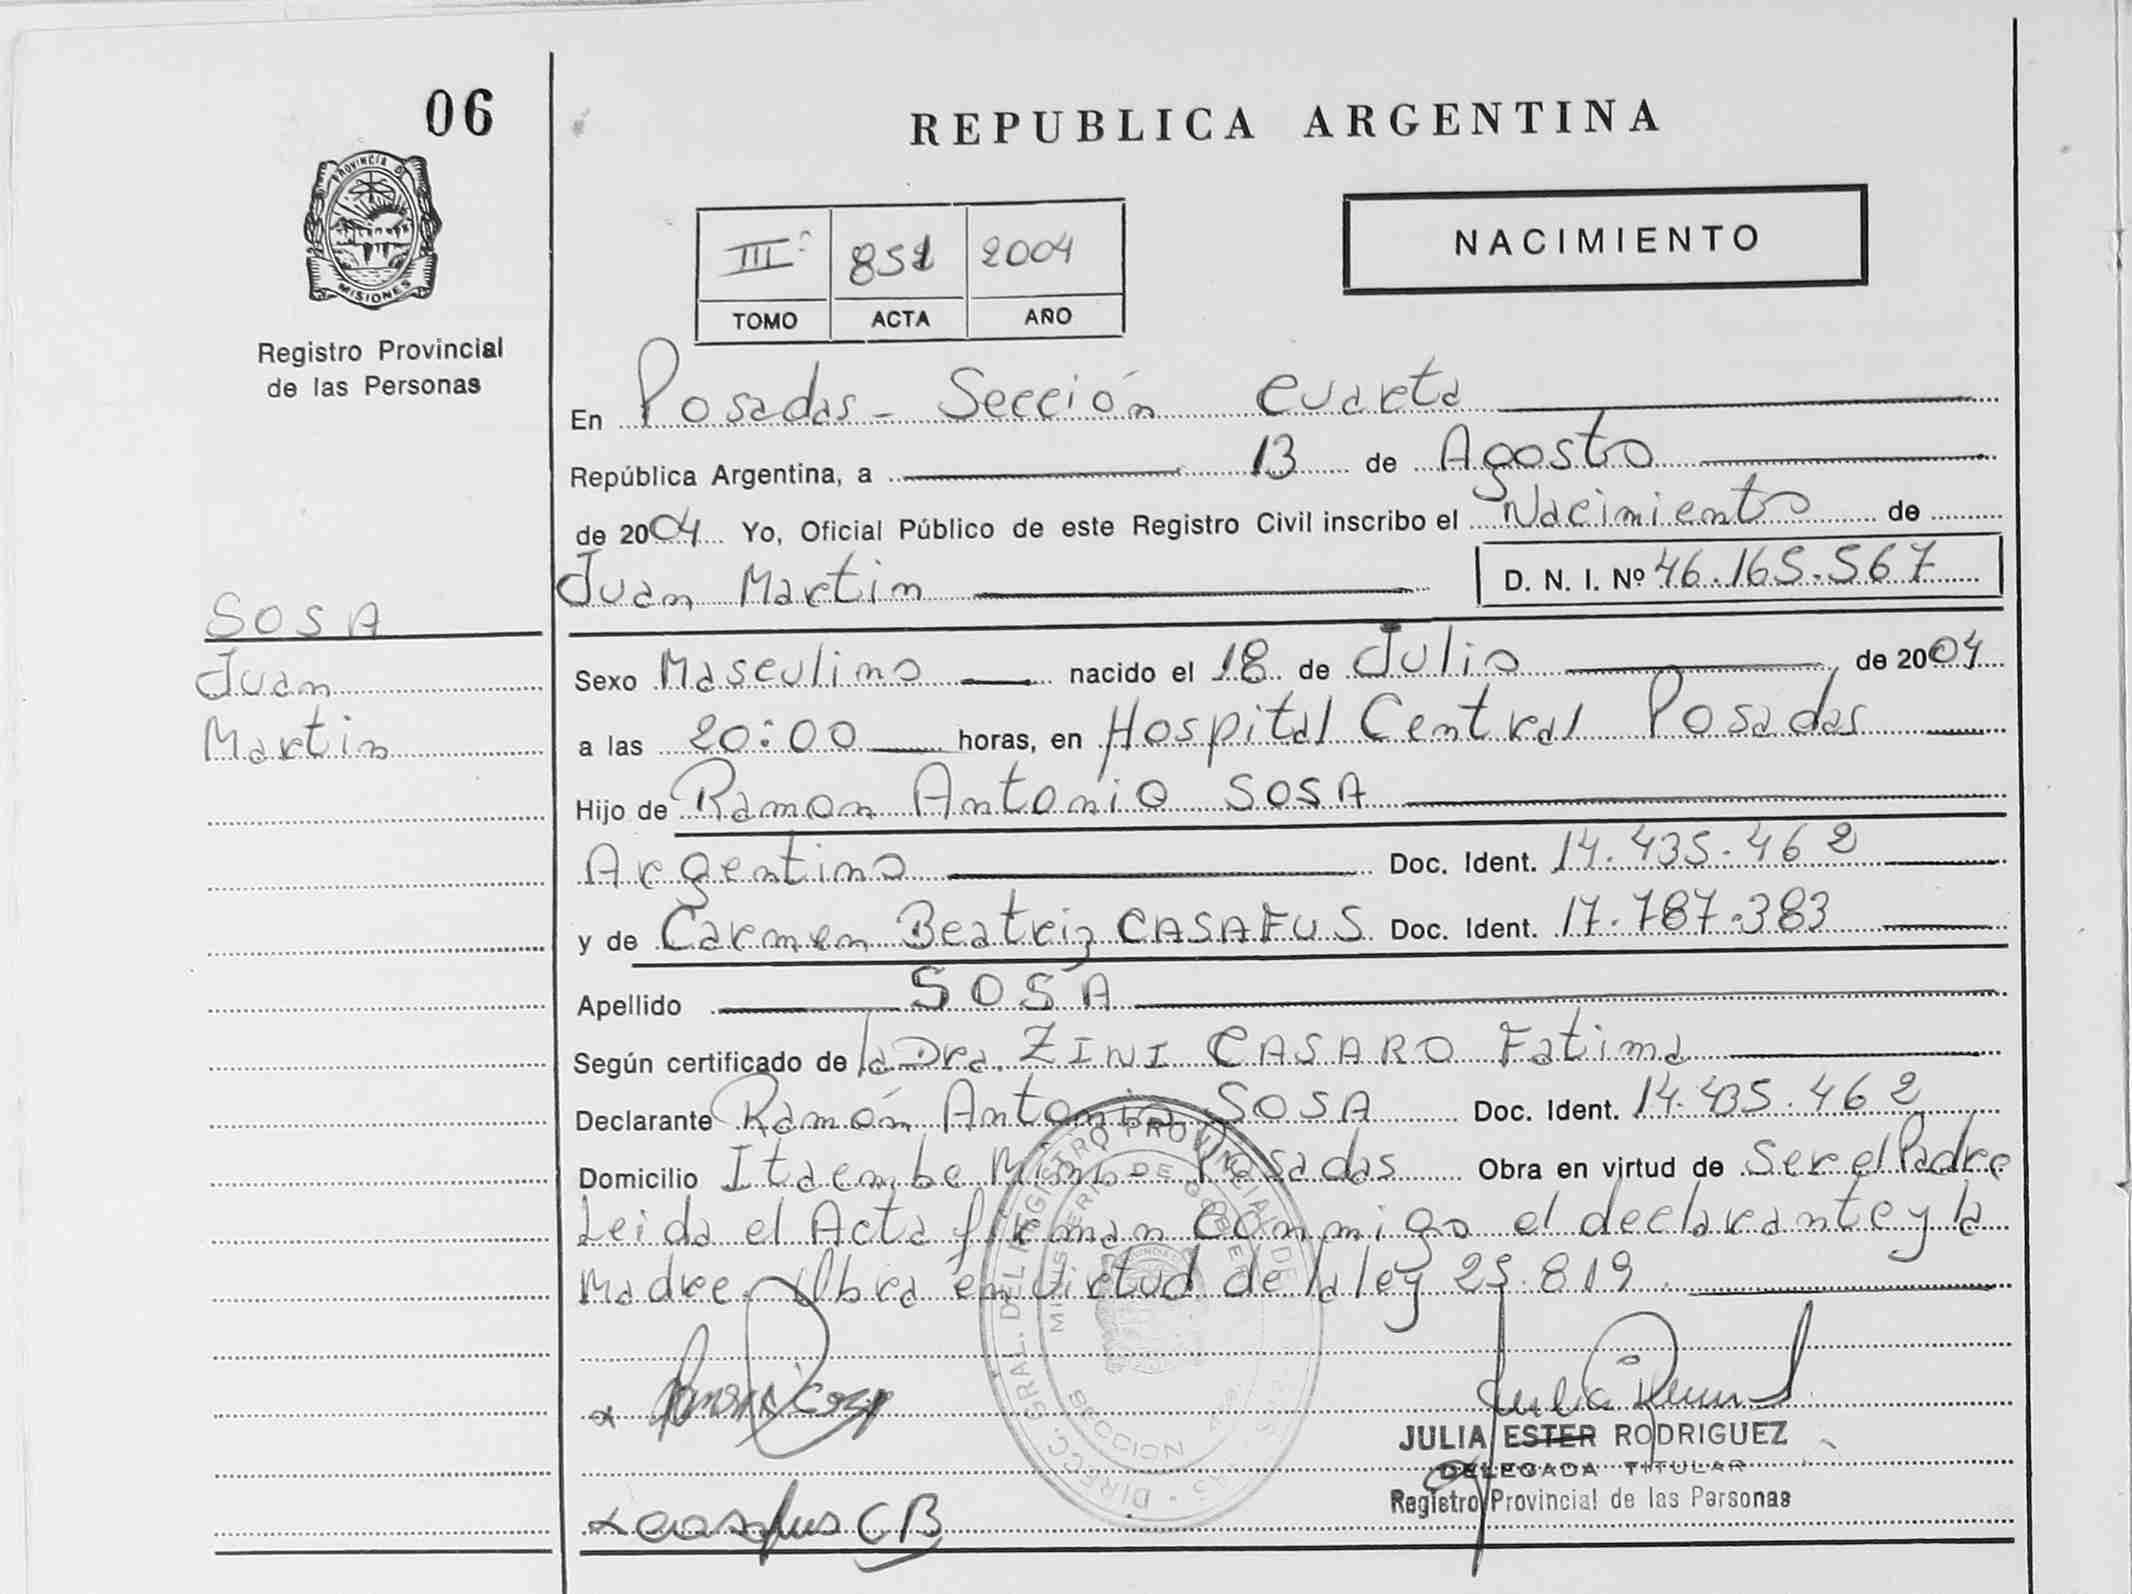 06
REPUBLICA ARGENTINA
PROVINCIA DE
MISIONES
Registro Provincial
de las Personas
III 851 2004
TOMO ACTA AÑO
NACIMIENTO
En Posadas - Sección Cuarta
República Argentina, a 13 de Agosto
de 2004 Yo, Oficial Público de este Registro Civil inscribo el Nacimiento de
Juan Martin D. N. I. Nº 46.165.567
SOSA
Juan
Martin
Sexo Masculino nacido el 18 de Julio de 2004
a las 20:00 horas, en Hospital Central Posadas
Hijo de Ramon Antonio SOSA
Argentino Doc. Ident. 14.435.462
y de Carmen Beatriz CASAFUS Doc. Ident. 17.787.383
Apellido SOSA
Según certificado de la Dra. ZINI CASARO Fatima
Declarante Ramón Antonio SOSA Doc. Ident. 14.435.462
Domicilio Itaembe Mini - Posadas Obra en virtud de Ser el Padre
Leida el Acta firman conmigo el declarante y la
Madre. Obra en virtud de la ley 25.819.
JULIA ESTER RODRIGUEZ
DELEGADA TITULAR
Registro Provincial de las Personas